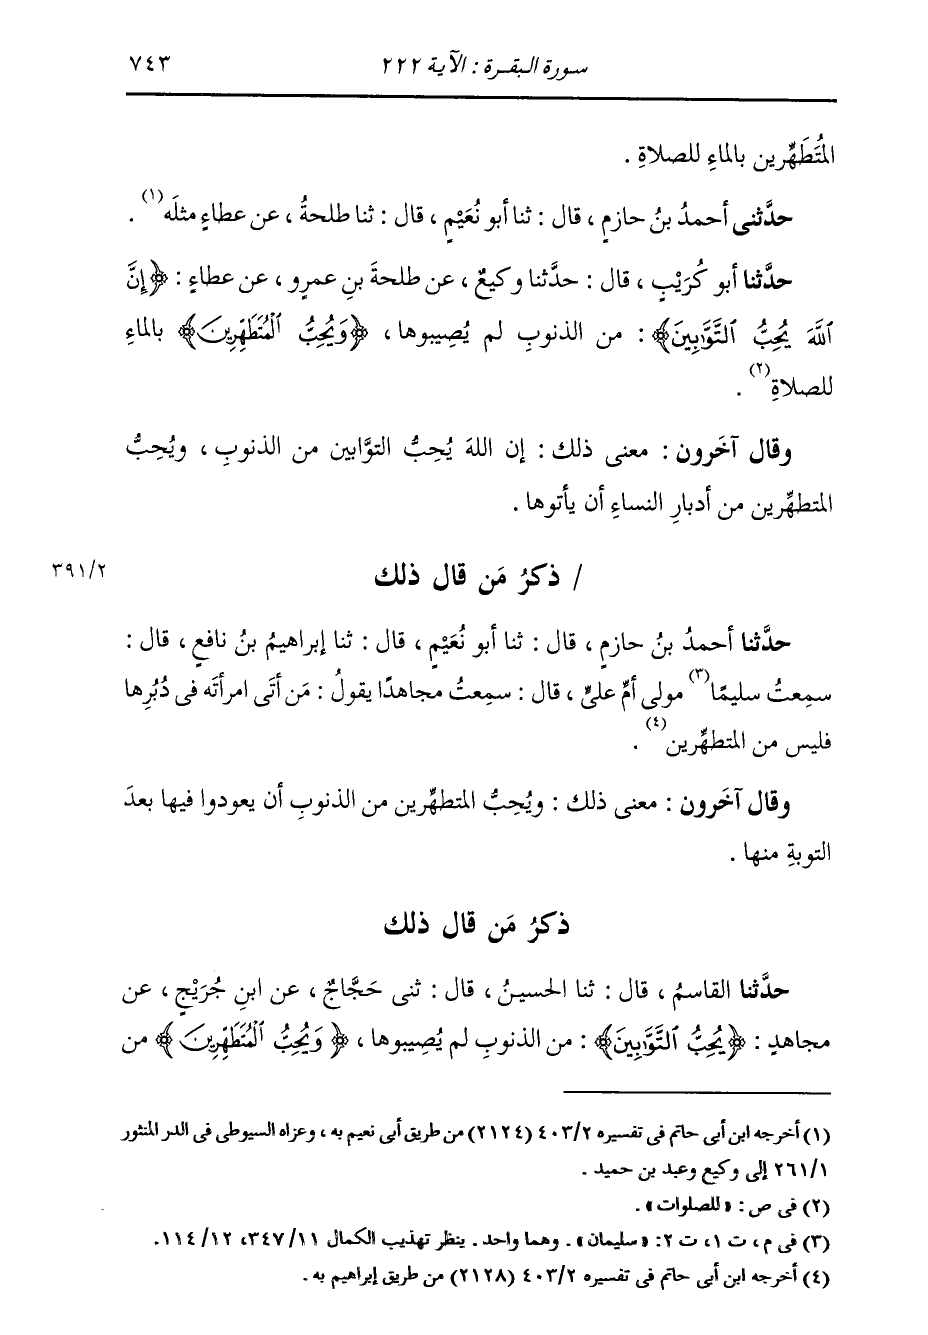 سورة البقرة : الآية ٢٢٢ ٧٤٣
المُتَطَهِّرين بالماءِ للصلاةِ .
حدَّثنى أحمدُ بنُ حازمٍ ، قال : ثنا أبو نُعَيْمٍ ، قال : ثنا طلحةُ ، عن عطاءٍ مثلَه(١) .
حدَّثنا أبو كُرَيْبٍ ، قال : حدَّثنا وكيعٌ ، عن طلحةَ بنِ عمرٍو ، عن عطاءٍ : ﴿إِنَّ
ٱللَّهَ يُحِبُّ ٱلتَّوَّٰبِينَ﴾ : من الذنوبِ لم يُصِيبوها ، ﴿وَيُحِبُّ ٱلْمُتَطَهِّرِينَ﴾ بالماءِ
للصلاةِ(٢) .
وقال آخَرون : معنى ذلك : إن اللهَ يُحِبُّ التوَّابين من الذنوبِ ، ويُحِبُّ
المتطهِّرين من أدبارِ النساءِ أن يأتوها .
/ ذكرُ مَن قال ذلك ٣٩١/٢
حدَّثنا أحمدُ بنُ حازمٍ ، قال : ثنا أبو نُعَيْمٍ ، قال : ثنا إبراهيمُ بنُ نافعٍ ، قال :
سمِعتُ سليمًا(٣) مولى أمِّ علىٍّ ، قال : سمِعتُ مجاهدًا يقولُ : مَن أتَى امرأتَه فى دُبُرِها
فليس من المتطهِّرين(٤) .
وقال آخَرون : معنى ذلك : ويُحِبُّ المتطهِّرين من الذنوبِ أن يعودوا فيها بعدَ
التوبةِ منها .
ذكرُ مَن قال ذلك
حدَّثنا القاسمُ ، قال : ثنا الحسينُ ، قال : ثنى حَجَّاجٌ ، عن ابنِ جُرَيْجٍ ، عن
مجاهدٍ : ﴿يُحِبُّ ٱلتَّوَّٰبِينَ﴾ : من الذنوبِ لم يُصِيبوها ، ﴿وَيُحِبُّ ٱلْمُتَطَهِّرِينَ﴾ من
(١) أخرجه ابن أبى حاتم فى تفسيره ٤٠٣/٢ (٢١٢٤) من طريق أبى نعيم به ، وعزاه السيوطى فى الدر المنثور
٢٦١/١ إلى وكيع وعبد بن حميد .
(٢) فى ص : «للصلوات» .
(٣) فى م ، ت ١ ، ت ٢: «سليمان» . وهما واحد . ينظر تهذيب الكمال ٣٤٧/١١ ، ١١٤/١٢ .
(٤) أخرجه ابن أبى حاتم فى تفسيره ٤٠٣/٢ (٢١٢٨) من طريق إبراهيم به .